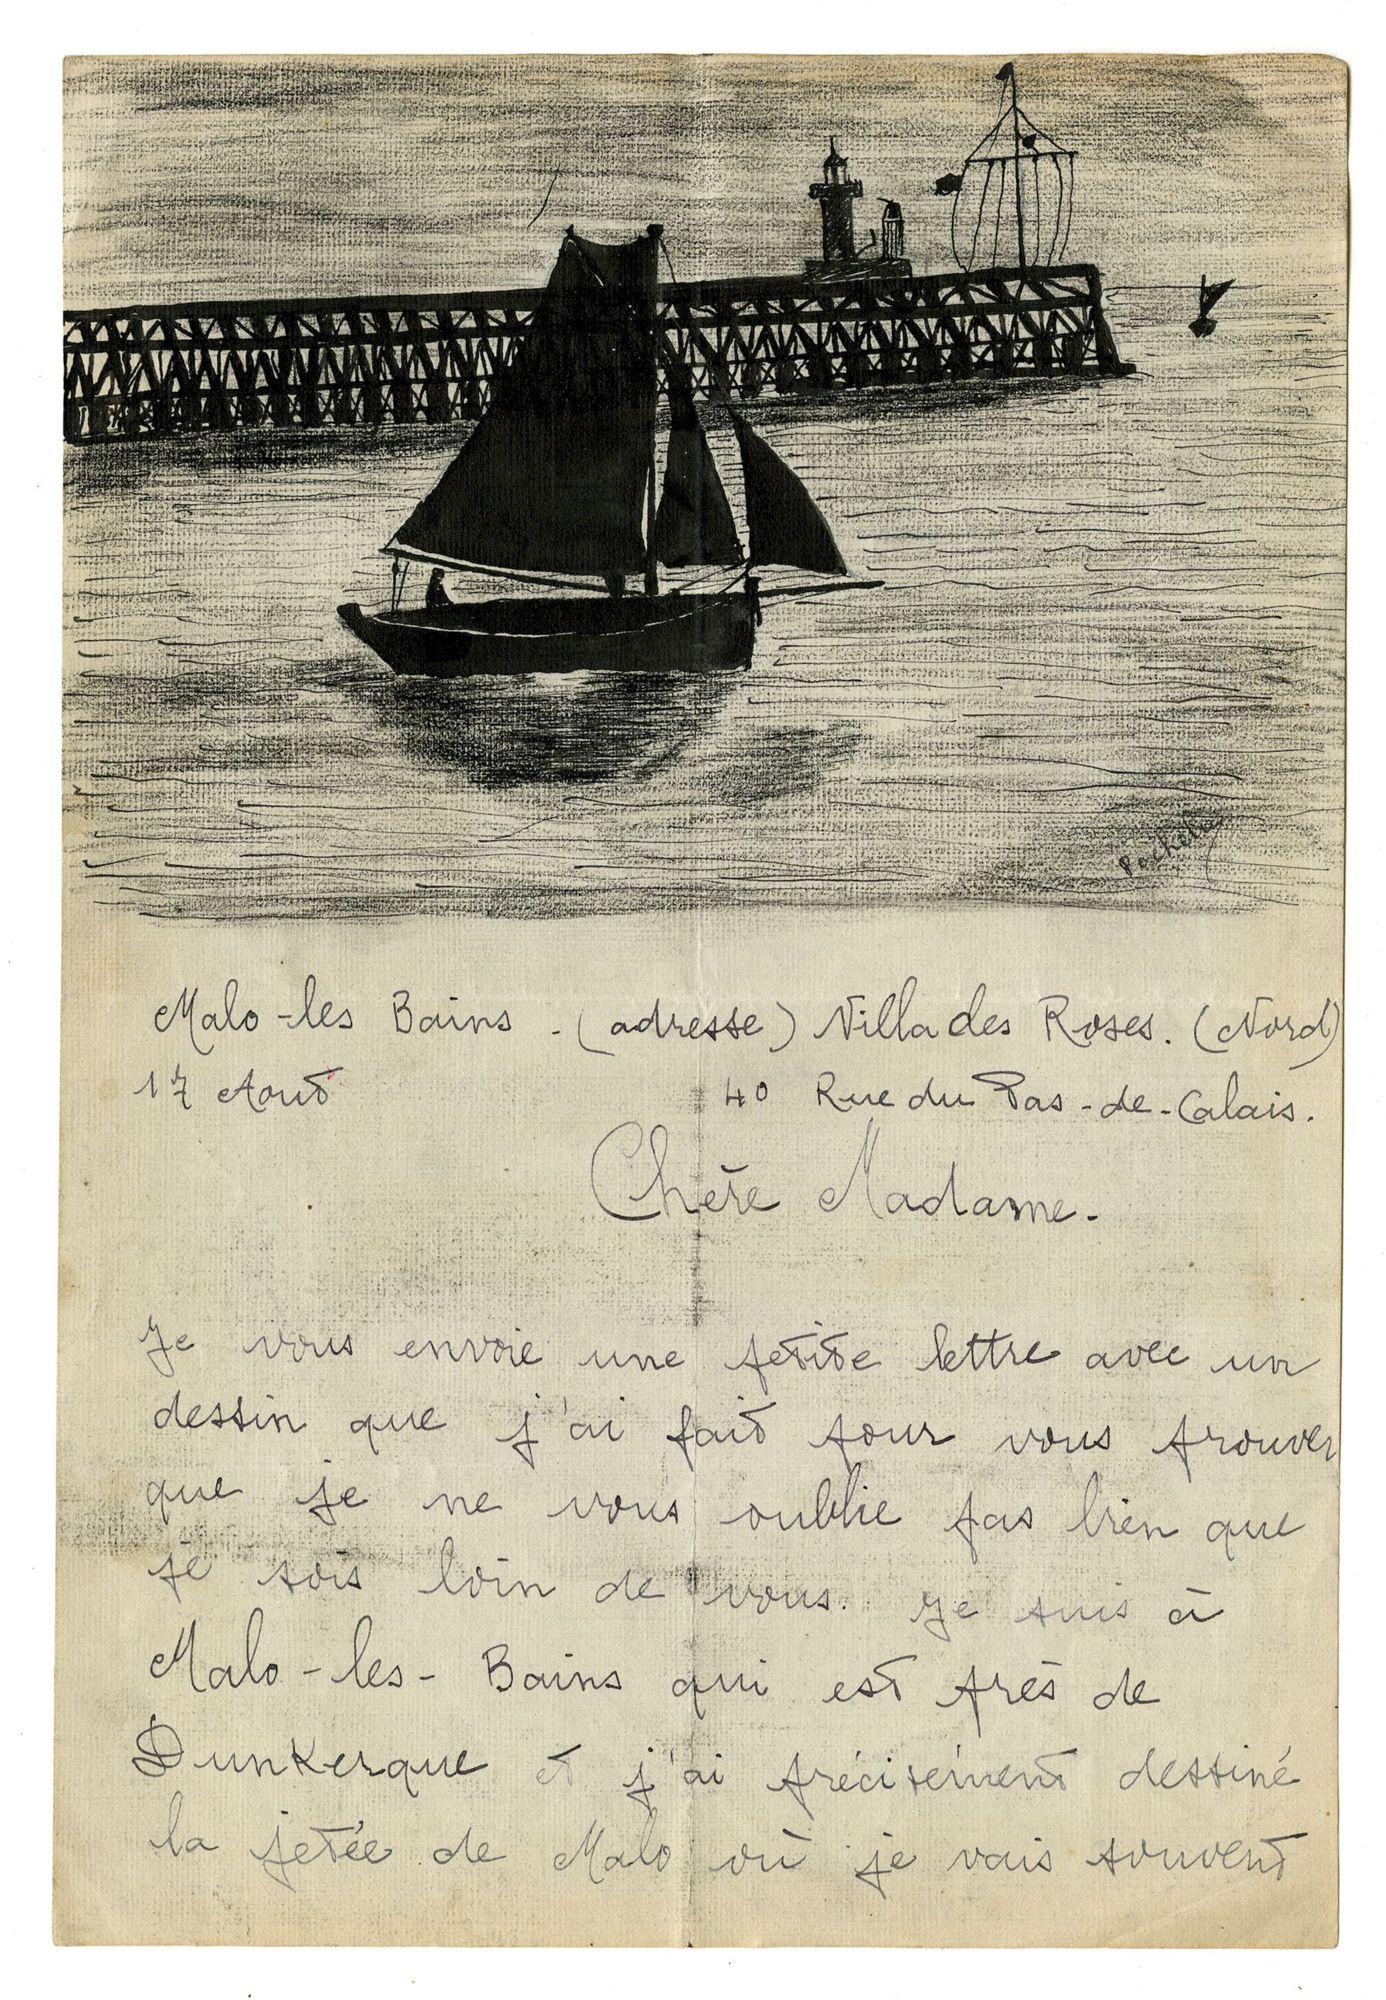 Malo-les Bains - (adresse) Villa des Roses. (Nord)
17 Aout 40 Rue du Pas-de-Calais.
Chère Madame.
Je vous envoie une petite lettre avec un
dessin que j'ai fait pour vous prouver
que je ne vous oublie pas bien que
je sois loin de vous. Je suis à
Malo-les-Bains qui est près de
Dunkerque et j'ai précisément dessiné
la jetée de Malo où je vais souvent